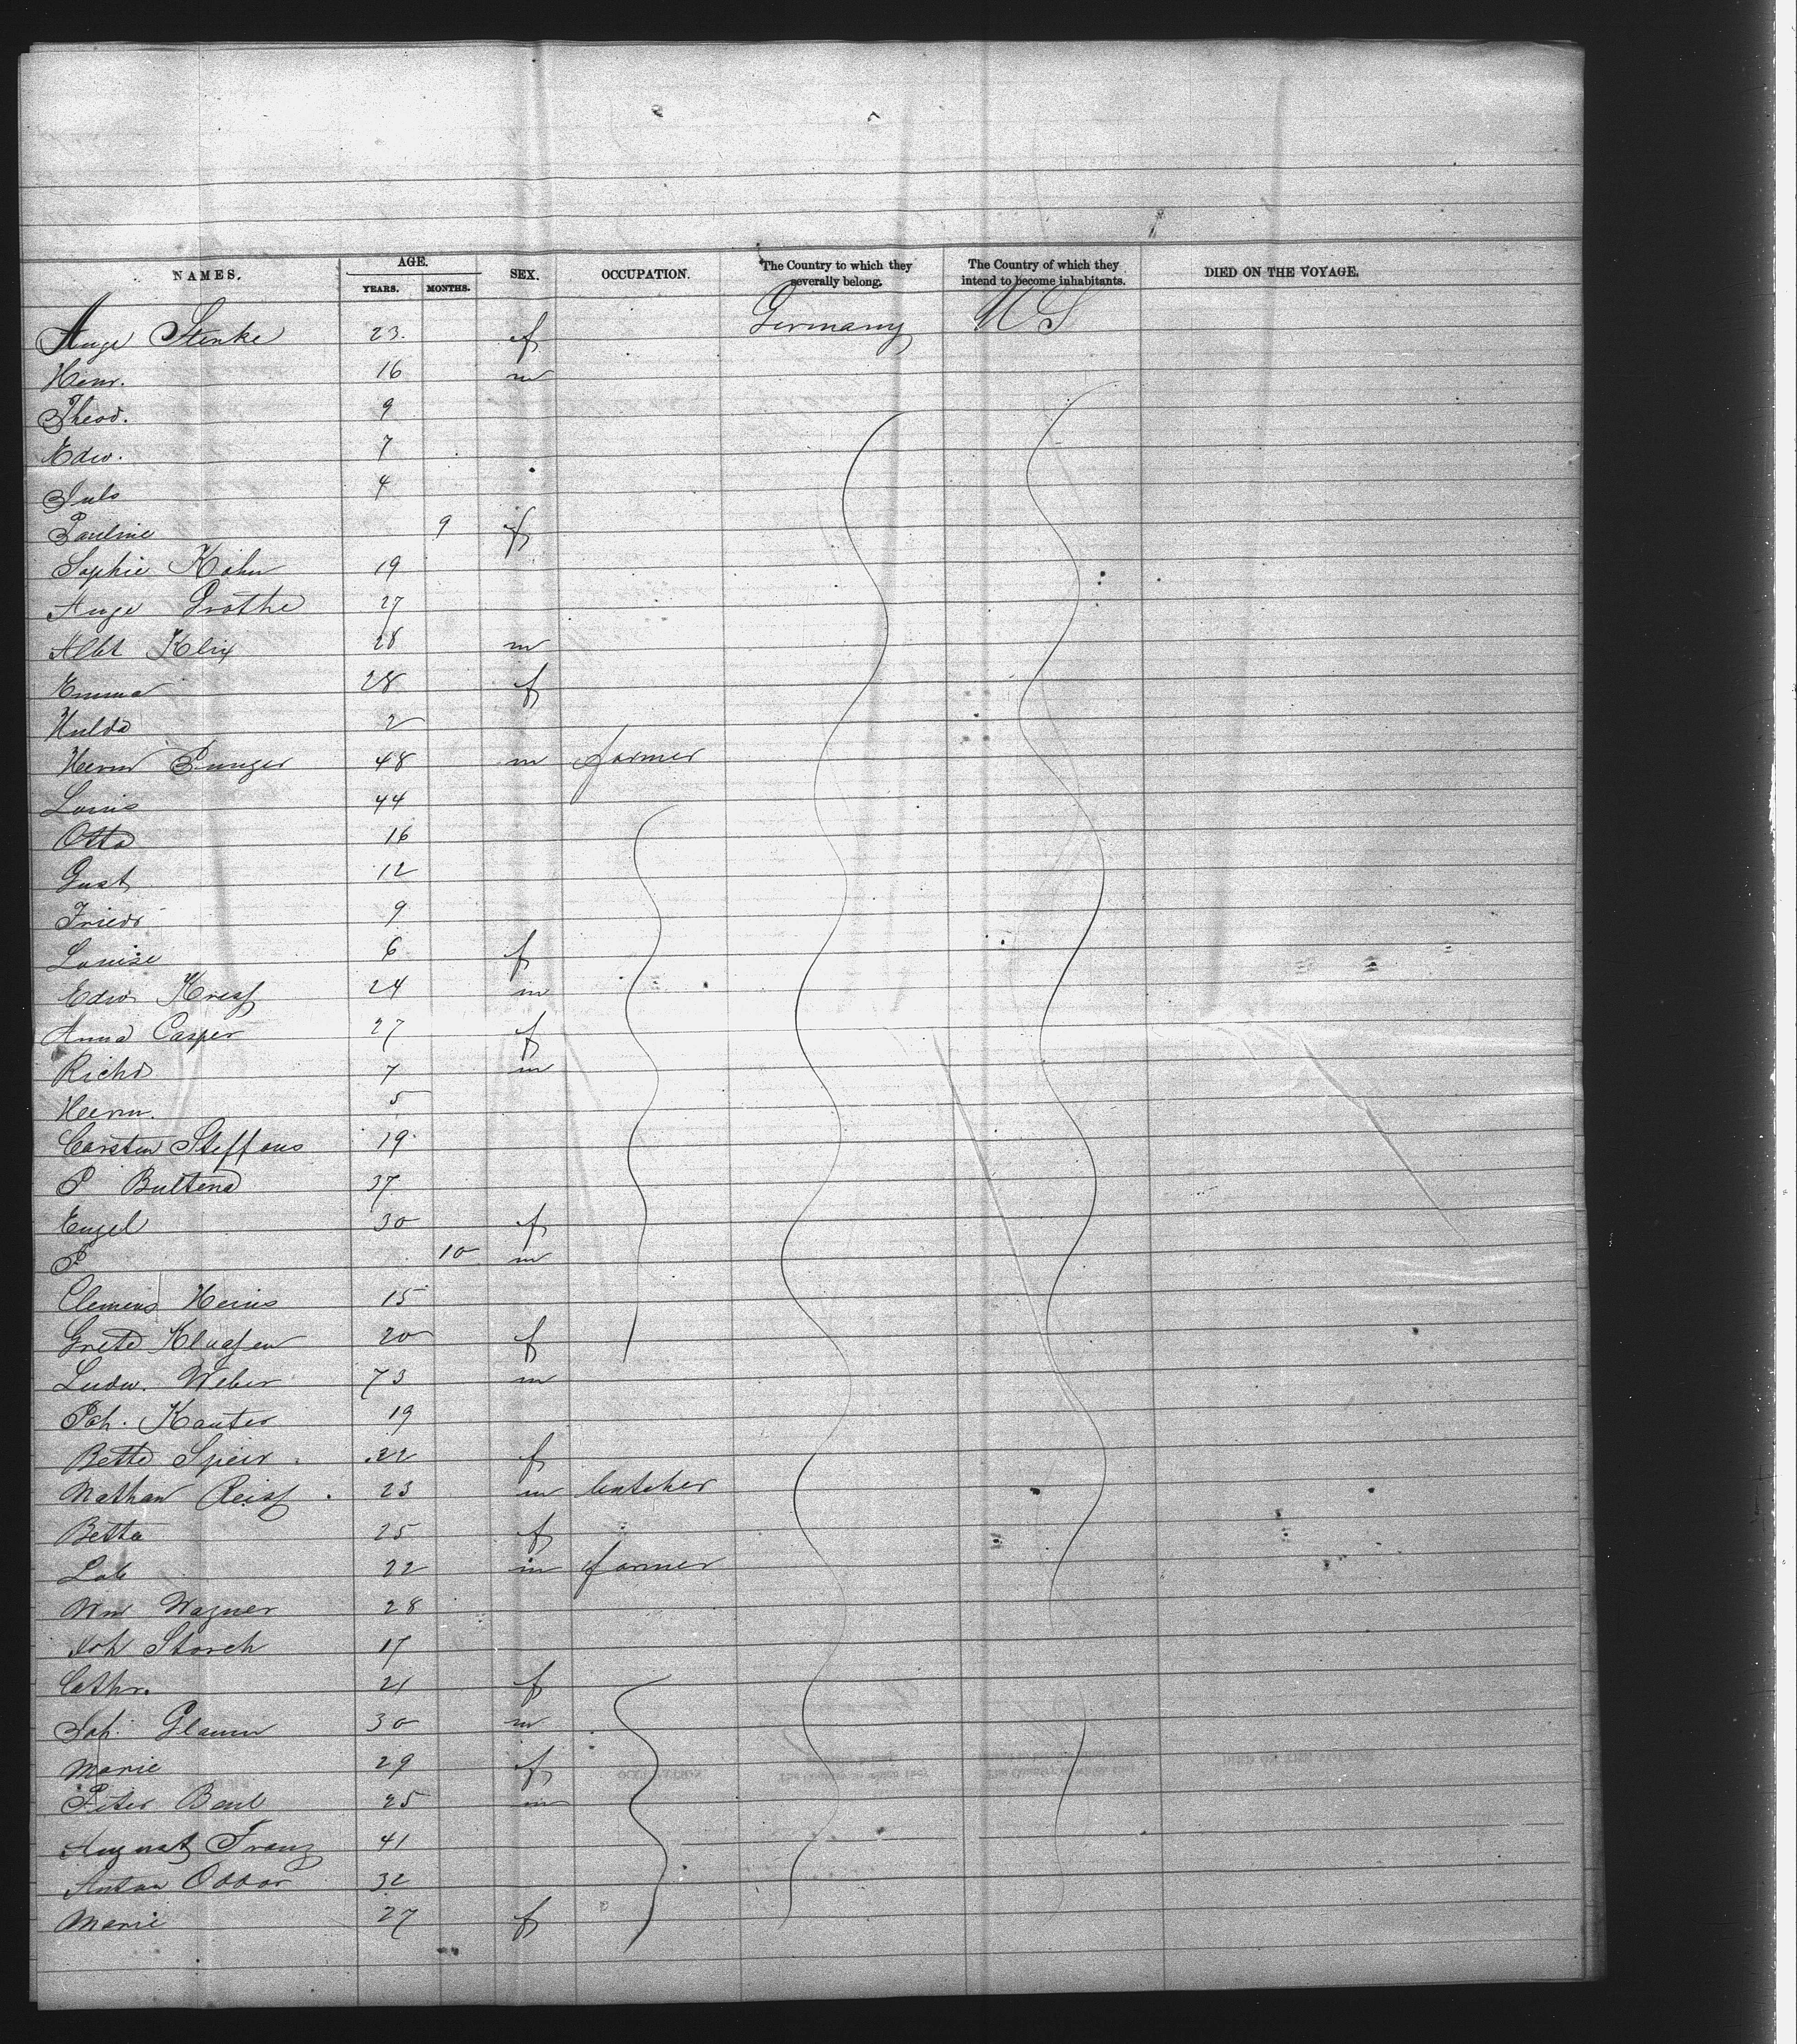 NAMES. AGE. SEX. OCCUPATION. The Country to which they severally belong. The Country of which they intend to become inhabitants. DIED ON THE VOYAGE.
YEARS. MONTHS.
Auge Stenke 23 f Germany US
Henr. 16 m
Theod. 9
Edw. 7
Juls 4
Pauline 9 f
Sophie Kohn 19
Auge Prothe 27
Albt Klix 28 m
Emma 28 f
Hulda 2
Herm Bunger 48 m farmer
Louis 44
Otto 16
Gust 12
Friedr 9
Louise 6 f
Edw Kreis 24 m
Anna Casper 27 f
Richd 7 m
Herm. 5
Carsten Steffens 19
P Bultena 37
Engel 30 f
P 10 m
Clemens Heins 15
Grete Klaassen 20 f
Ludw. Weber 73 m
Joh. Kauter 19
Bette Speir 22 f
Nathan Reiss 23 m butcher
Betta 25 f
Lob 22 m farmer
Wm Wagner 28
Joh Storch 17
Cathr. 21 f
Joh. Glaum 30 m
Marie 29 f
Peter Baul 25 m
August Franz 41
Anton Oddor 32
Marie 27 f